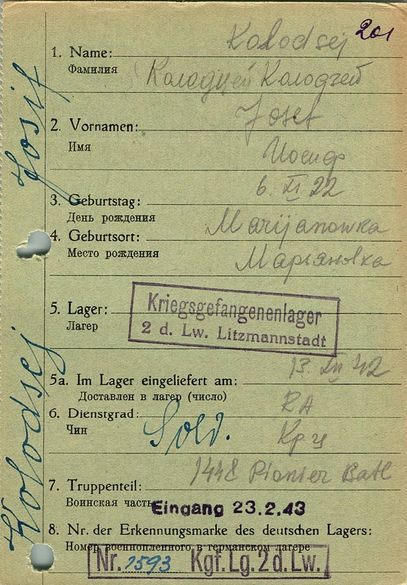 201
Kolodsej
1. Name:
Фамилия Колодцей Колодзей
Josef
2. Vornamen:
Имя Иосиф
6. XI. 22
3. Geburtstag:
День рождения Marijanowka
4. Geburtsort:
Место рождения Маріяновка
5. Lager:
Лагерь
Kriegsgefangenenlager
2 d. Lw. Litzmannstadt
13. XII 42
5a. Im Lager eingeliefert am:
Доставлен в лагерь (число) RA
6. Dienstgrad:
Чин Sold. Кр ц
1448 Pionier Batl
7. Truppenteil:
Воинская часть Eingang 23.2.43
8. Nr. der Erkennungsmarke des deutschen Lagers:
Номер военнопленного в германском лагере
Nr. 1593 Kgf. Lg. 2 d. Lw.
Kolodsej Josif